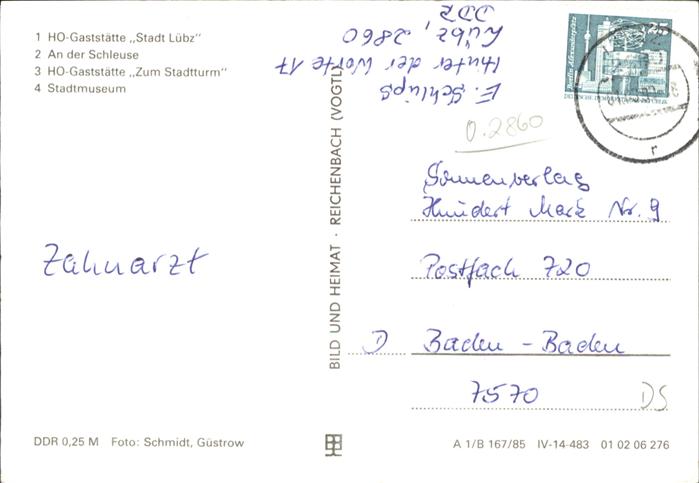 1 HO-Gaststätte „Stadt Lübz"
2 An der Schleuse
3 HO-Gaststätte „Zum Stadtturm"
4 Stadtmuseum
E. Schlüps
Hinter der Worte 17
Lübz, 2860
DDR
25
Berlin, Alexanderplatz
0.2860
Sonnenverlag
Hundert Mark Nr. 9
Zahnarzt
Postfach 720
D Baden - Baden
7570
DS
BILD UND HEIMAT · REICHENBACH (VOGTL)
DDR 0,25 M Foto: Schmidt, Güstrow
A 1/B 167/85 IV-14-483 01 02 06 276